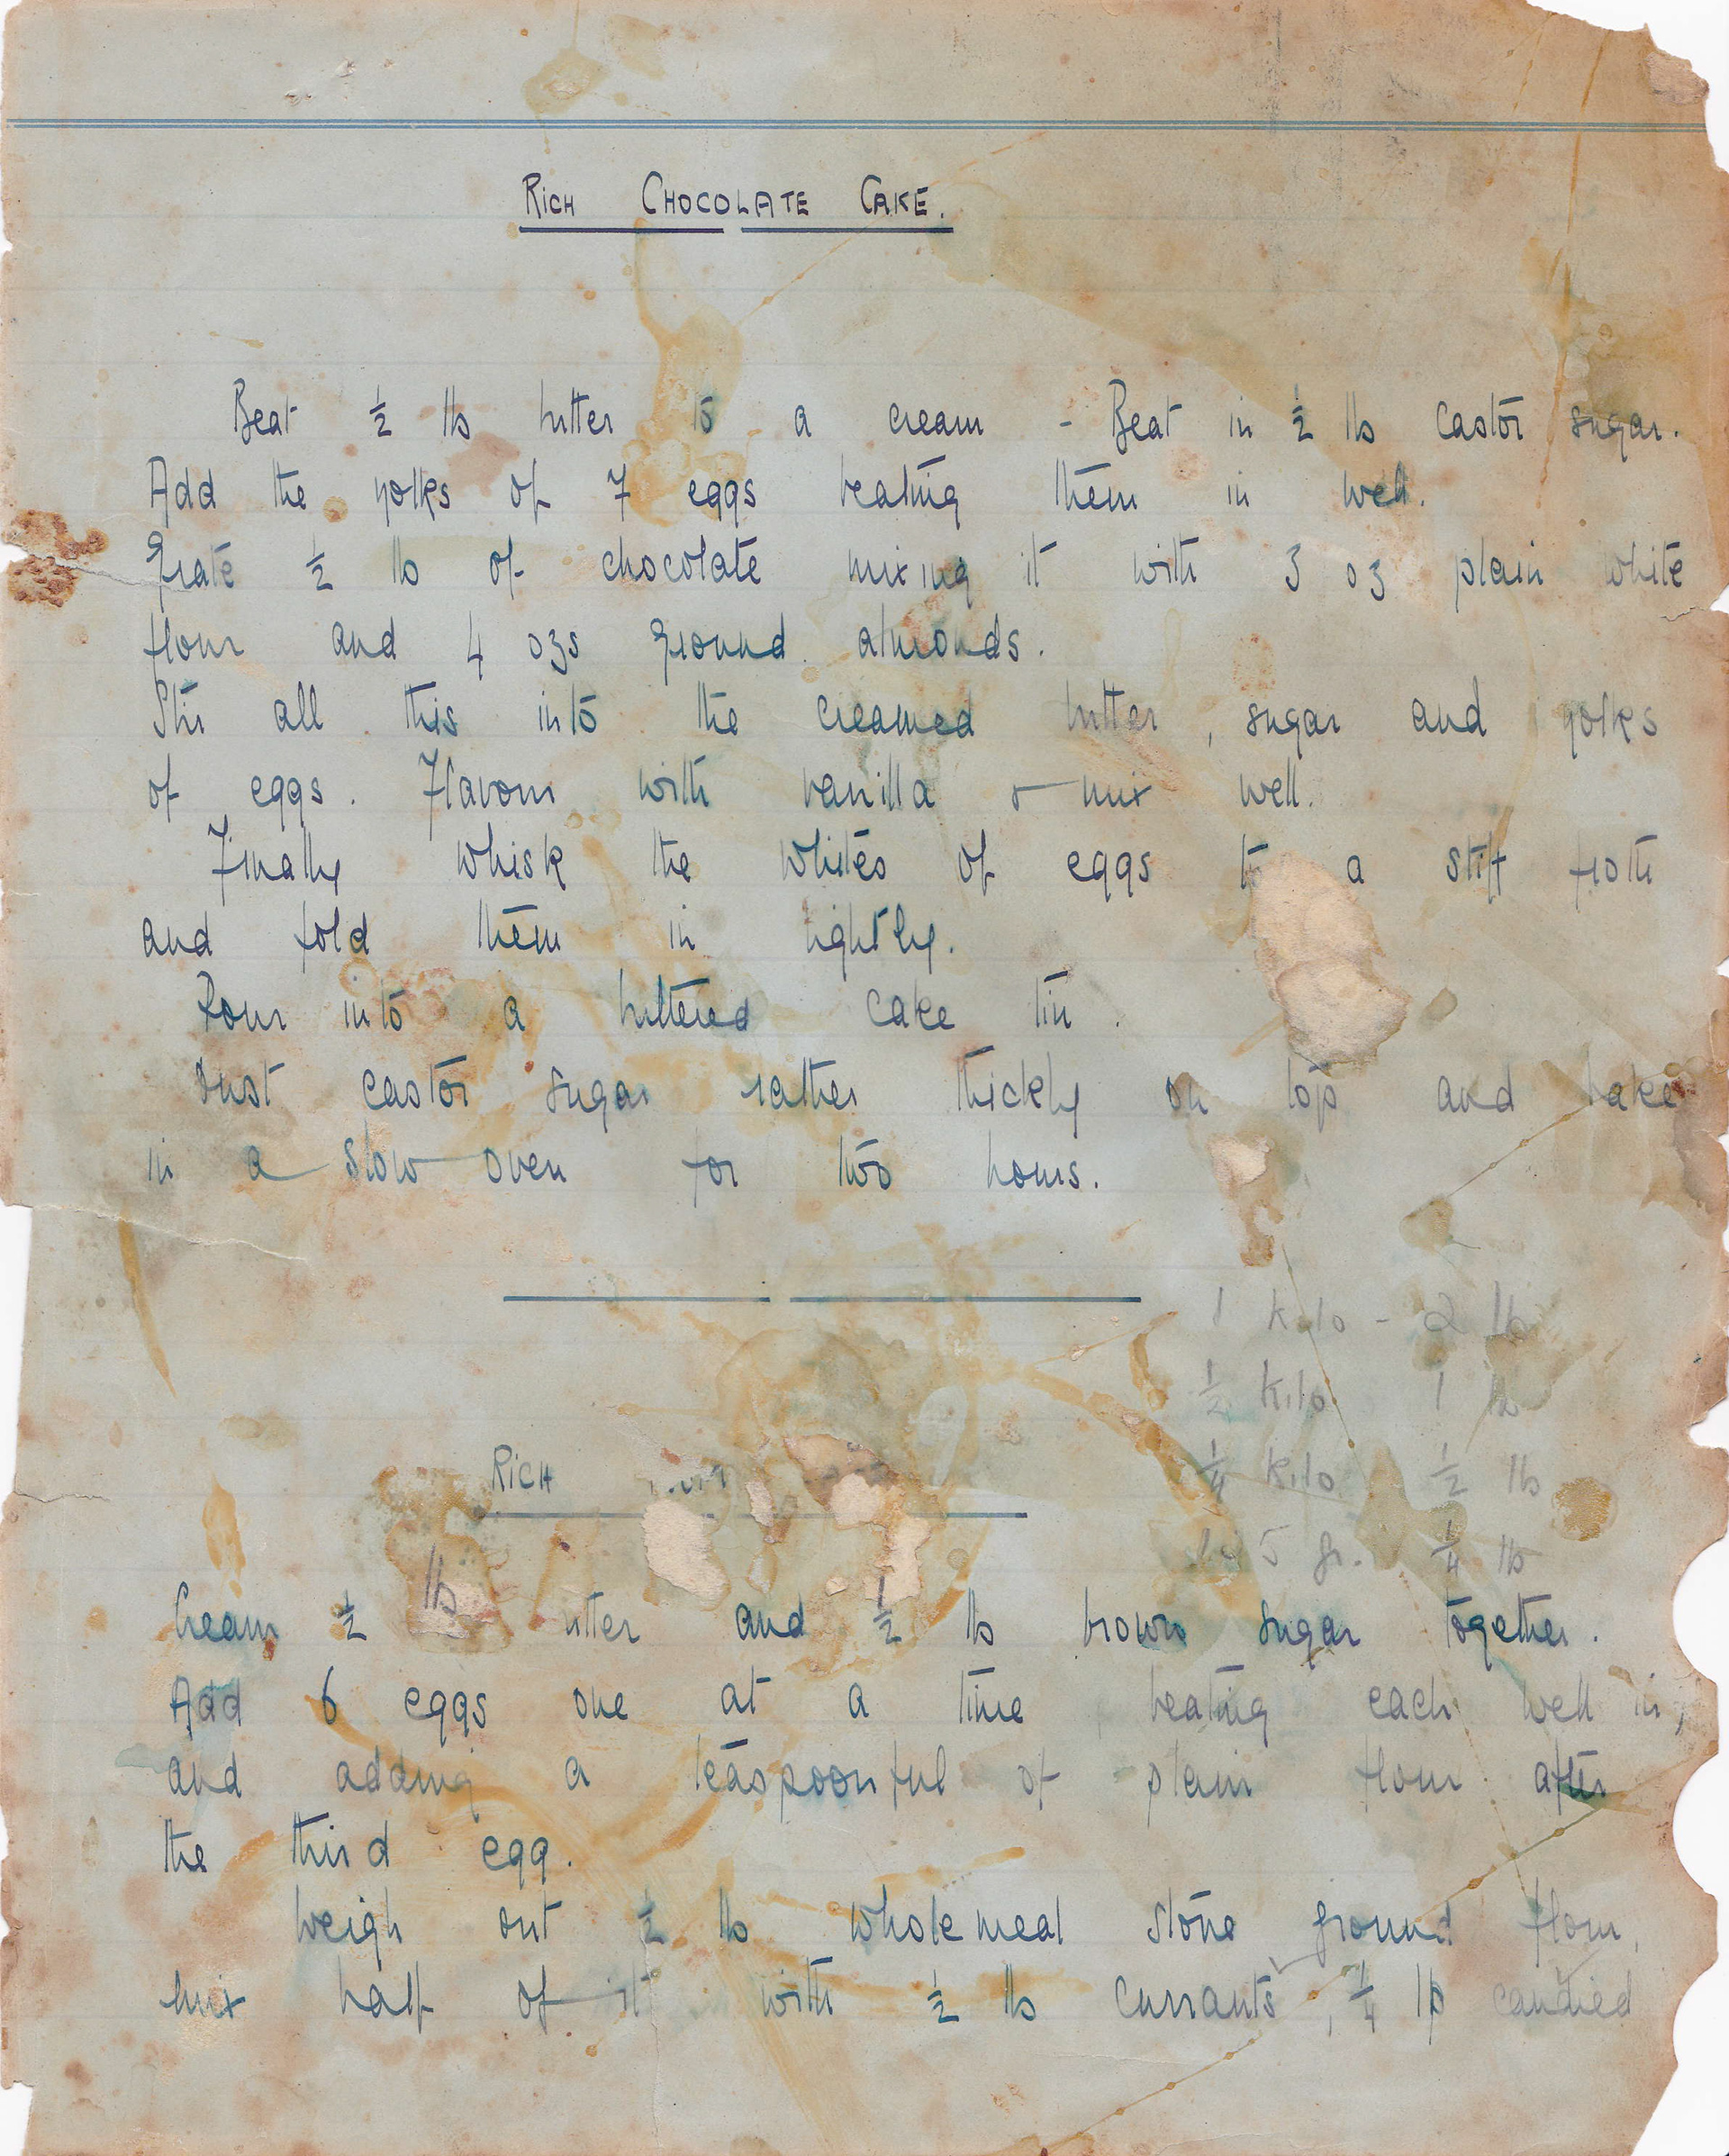 RICH CHOCOLATE CAKE.
Beat ½ lb butter to a cream - Beat in ½ lb castor sugar.
Add the yolks of 7 eggs beating them in well.
Grate ½ lb of chocolate mixing it with 3 oz plain white
flour and 4 ozs ground almonds.
Stir all this into the creamed butter, sugar and yolks
of eggs. Flavour with vanilla & mix well.
Finally whisk the whites of eggs to a stiff froth
and fold them in lightly.
Pour into a buttered cake tin.
Dust castor sugar rather thickly on top and bake
in a slow oven for two hours.
1 kilo - 2 lb
½ kilo 1 lb
¼ kilo ½ lb
125 gr. ¼ lb
RICH
Cream ½ lb utter and ½ lb brown sugar together.
Add 6 eggs one at a time, beating each well in,
and adding a teaspoonful of plain flour after
the third egg.
Weigh out ½ lb wholemeal stone ground flour,
mix half of it with ½ lb currants, ¼ lb candied